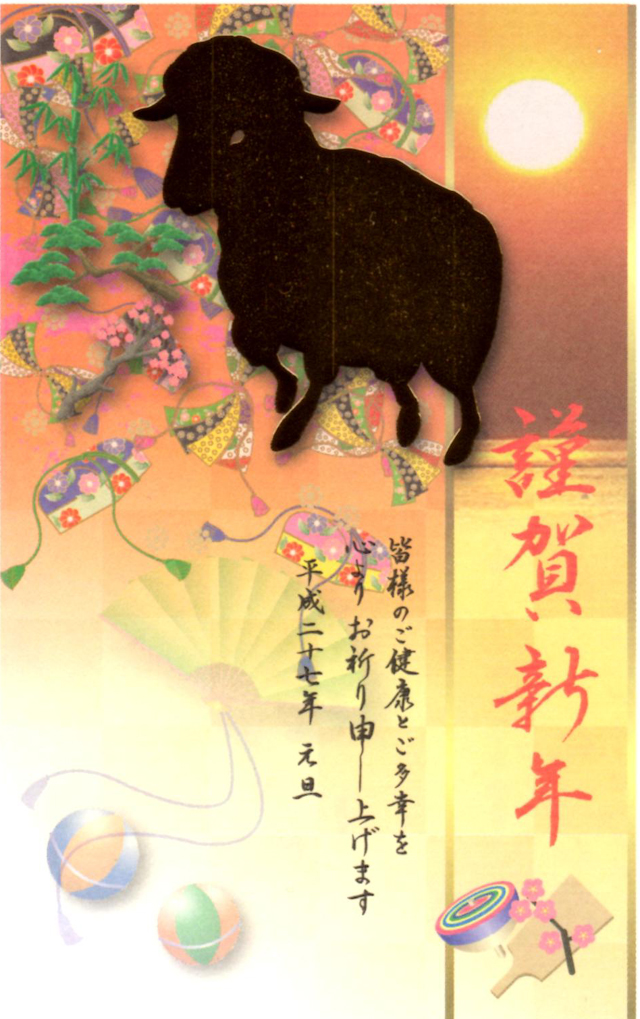 謹賀新年
皆様のご健康とご多幸を
心よりお祈り申し上げます
平成二十七年 元旦